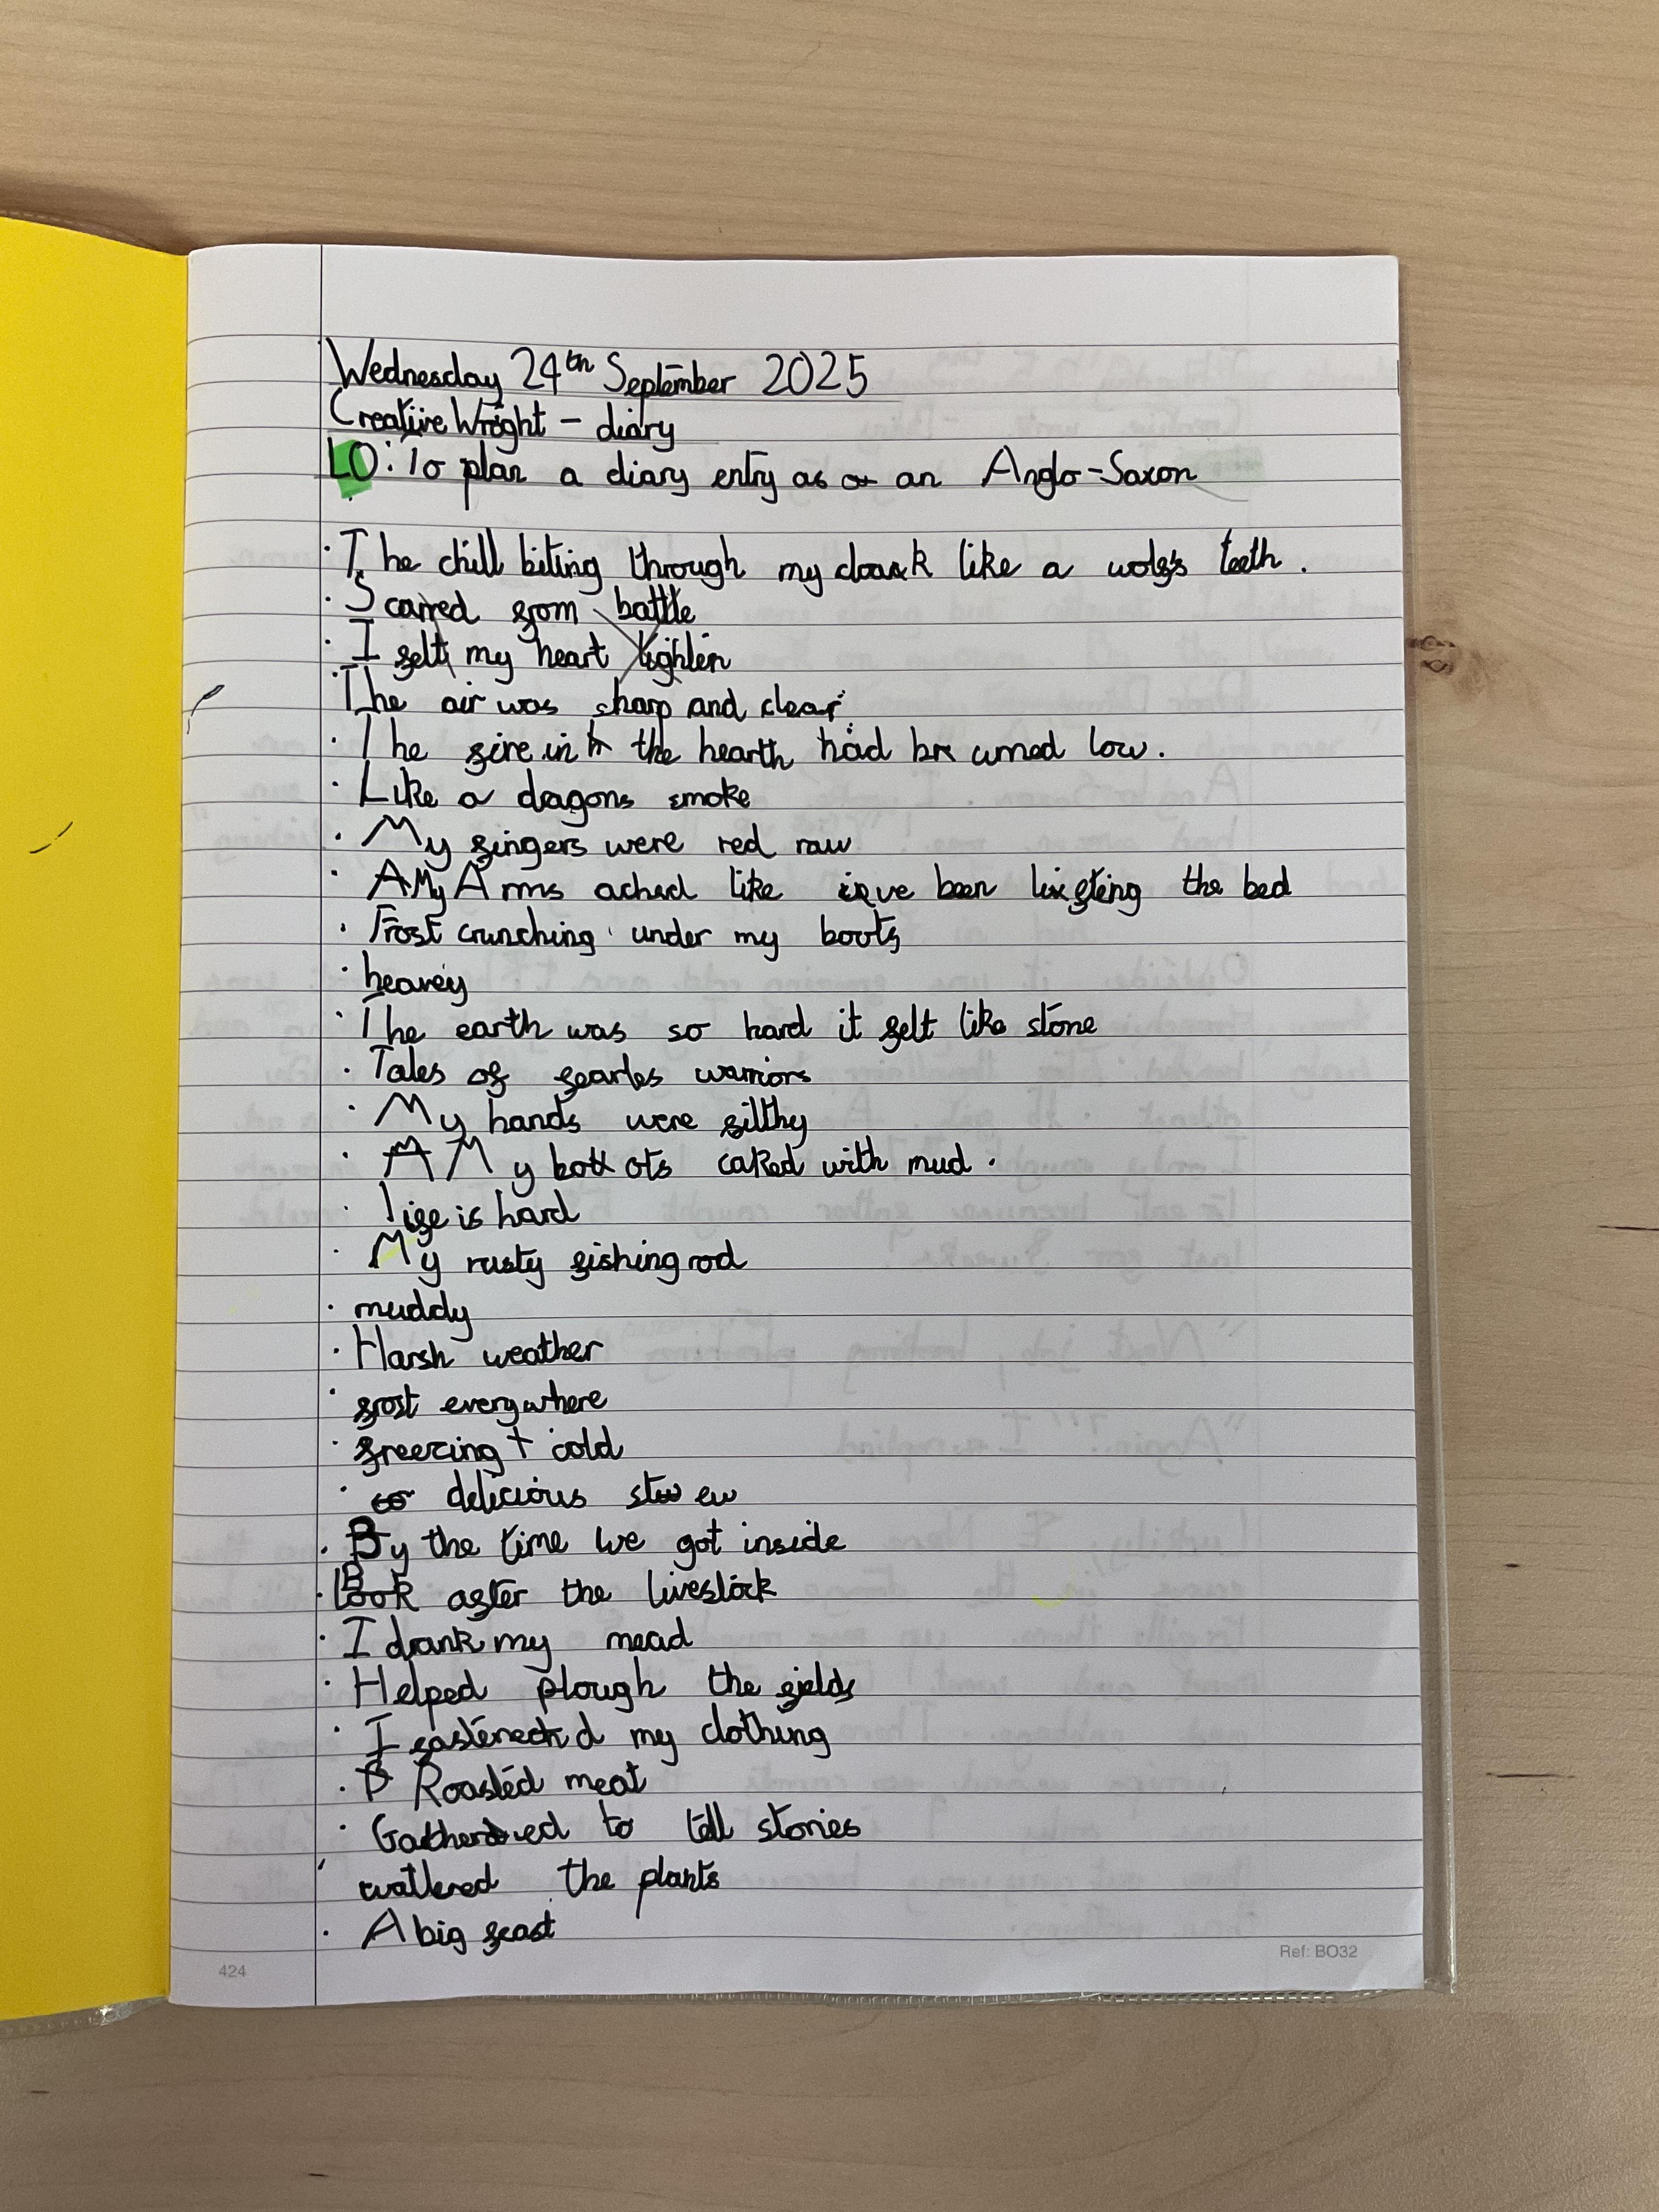 Wednesday 24th September 2025
Creative Wright - diary
LO: To plan a diary entry as an Anglo-Saxon
· The chill biting through my cloak like a wolfs teeth.
· Scarred from battle
· I felt my heart lighten
· The air was sharp and clear.
· The fire in the hearth had burned low.
· Like a dragons smoke
· My fingers were red raw
· My Arms ached like ive been lifting the bed
· Frost crunching under my boots
· heavey
· The earth was so hard it felt like stone
· Tales of fearles warriors
· My hands were filthy
· My boots caked with mud.
· life is hard
· My rusty fishing rod
· muddy
· Harsh weather
· frost everywhere
· freezing + cold
· delicious stew
· By the time we got inside
· Look after the livestock
· I drank my mead
· Helped plough the fields
· I fastened my clothing
· Roasted meat
· Gathered to tell stories
· wattered the plants
· A big feast
424
Ref: BO32